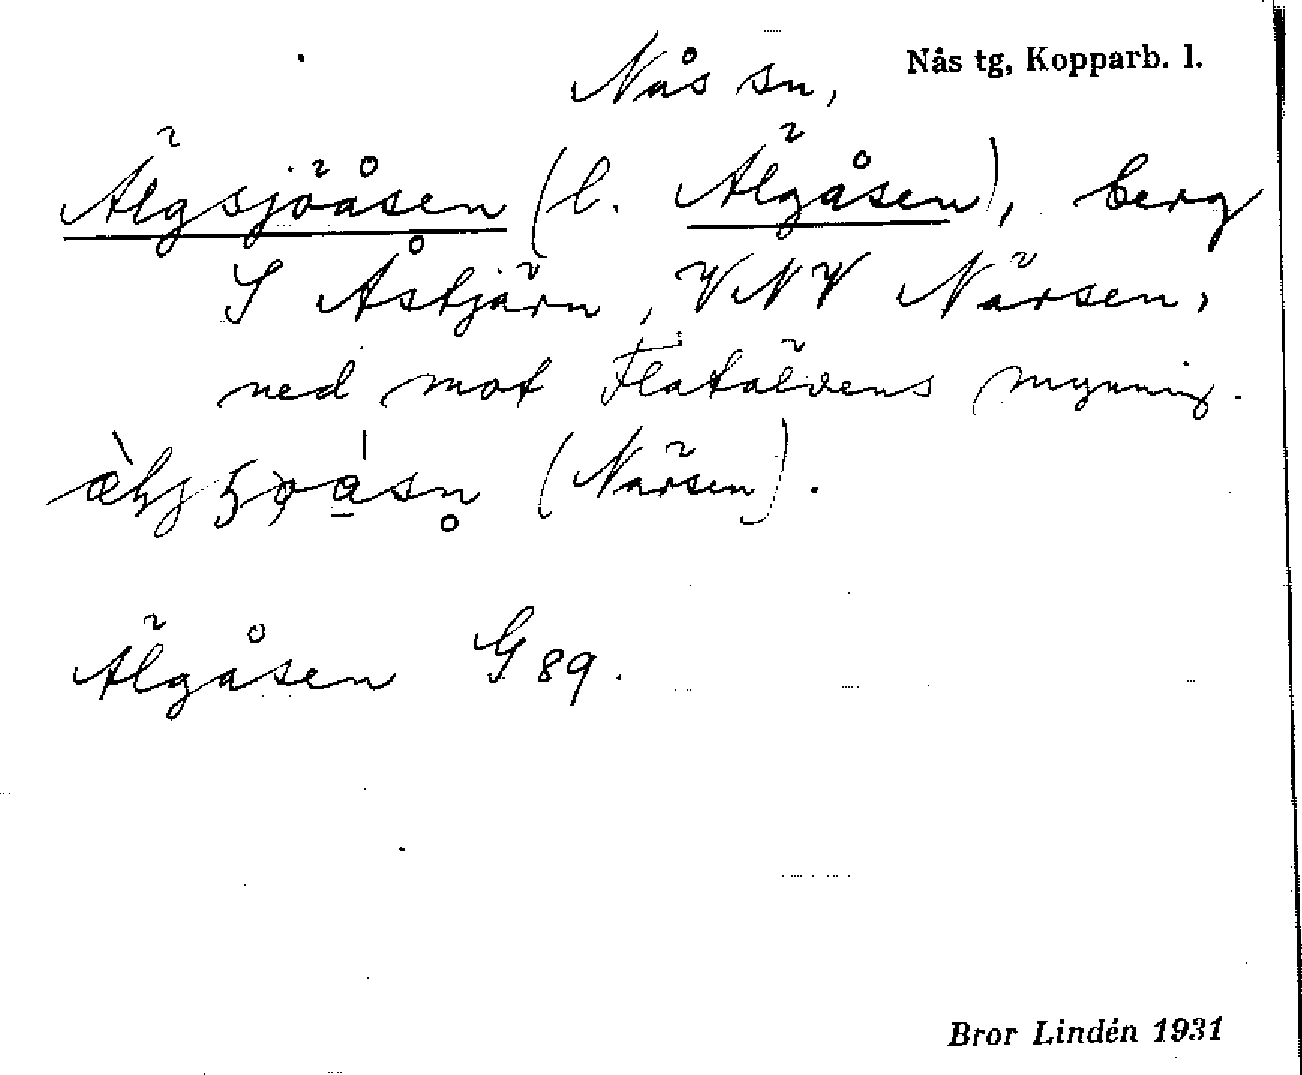 Nås sn, Nås tg, Kopparb. l.
Älgsjöåsen (l. Älgåsen), berg
S Åstjärn, VNV Närsen,
ned mot Flatälvens mynning.
(Närsen).
Älgåsen G 89.
Bror Lindén 1931